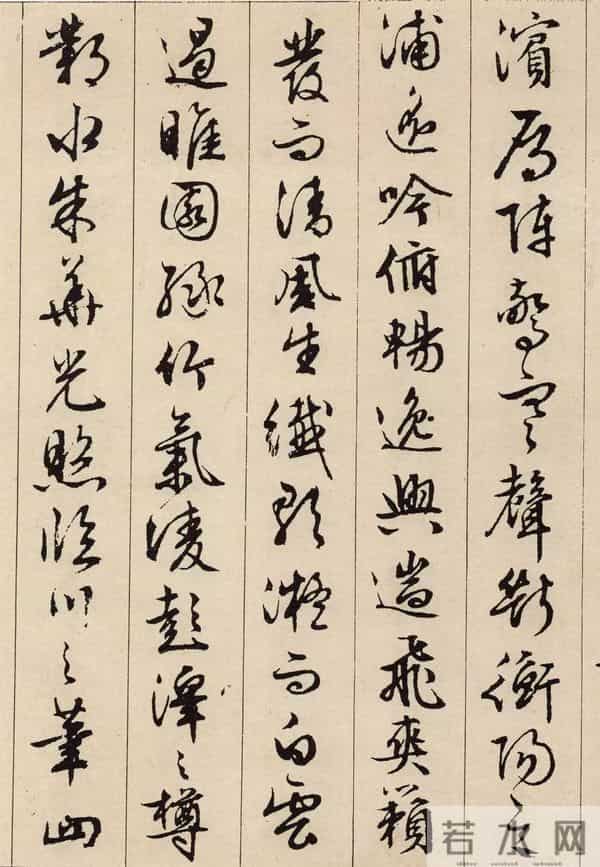 濱鴈陣驚寒聲斷衡陽之
浦遙吟俯暢逸興遄飛爽籟
發而清風生纖歌凝而白雲
遏睢園綠竹氣淩彭澤之樽
鄴水朱華光照臨川之筆四
若水网